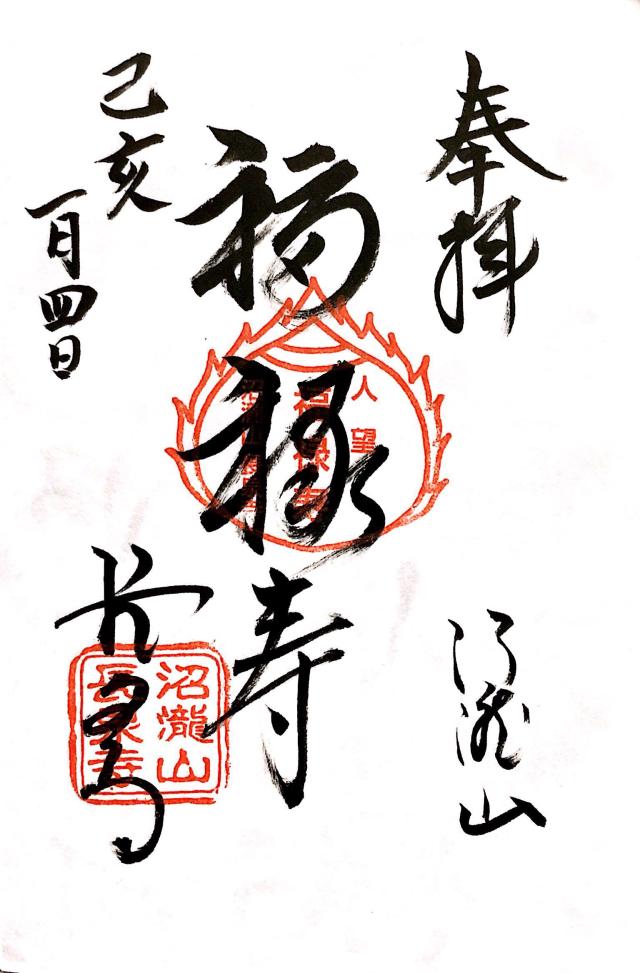 奉拝
沼瀧山
福禄寿
人望
福禄寿
己亥
一月四日
長泉寺
沼瀧山
長泉寺